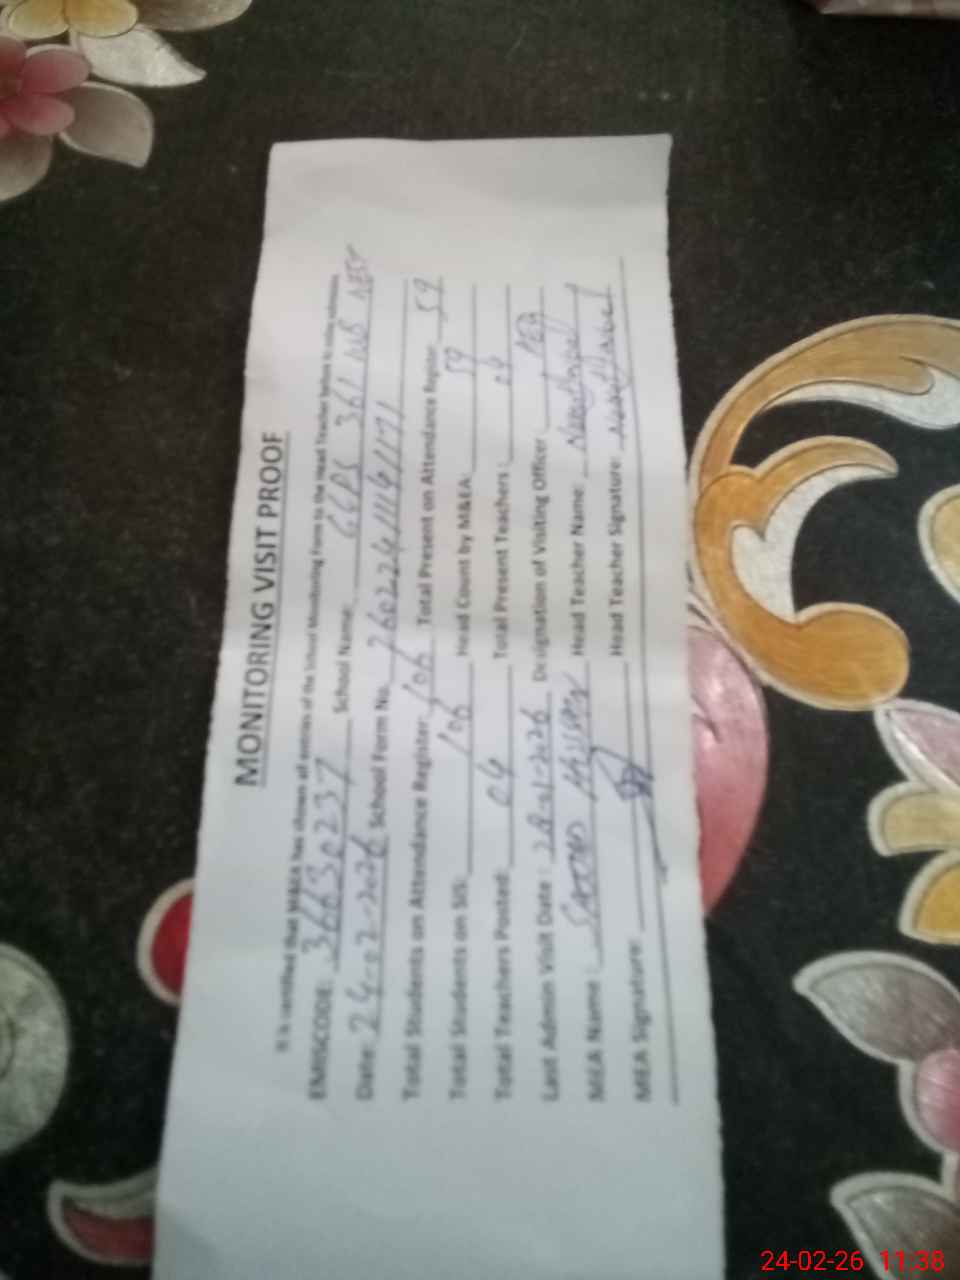 MONITORING VISIT PROOF
It is certified that M&EA has shown all entries of the School Monitoring Form to the Head Teacher before
EMISCODE: 36630237 School Name: GGPS 361 WB
Date: 24-02-2026 School Form No. 26022411141171
Total Students on Attendance Register: 106 Total Present on Attendance Register: 59
Total Students on SIS: 106 Head Count by M&EA: 59
Total Teachers Posted: 04 Total Present Teachers: 04
Last Admin Visit Date: 28-01-2026 Designation of Visiting Officer AEO
MEA Name: Head Teacher Name:
MEA Signature: Head Teacher Signature:
24-02-26 11:38